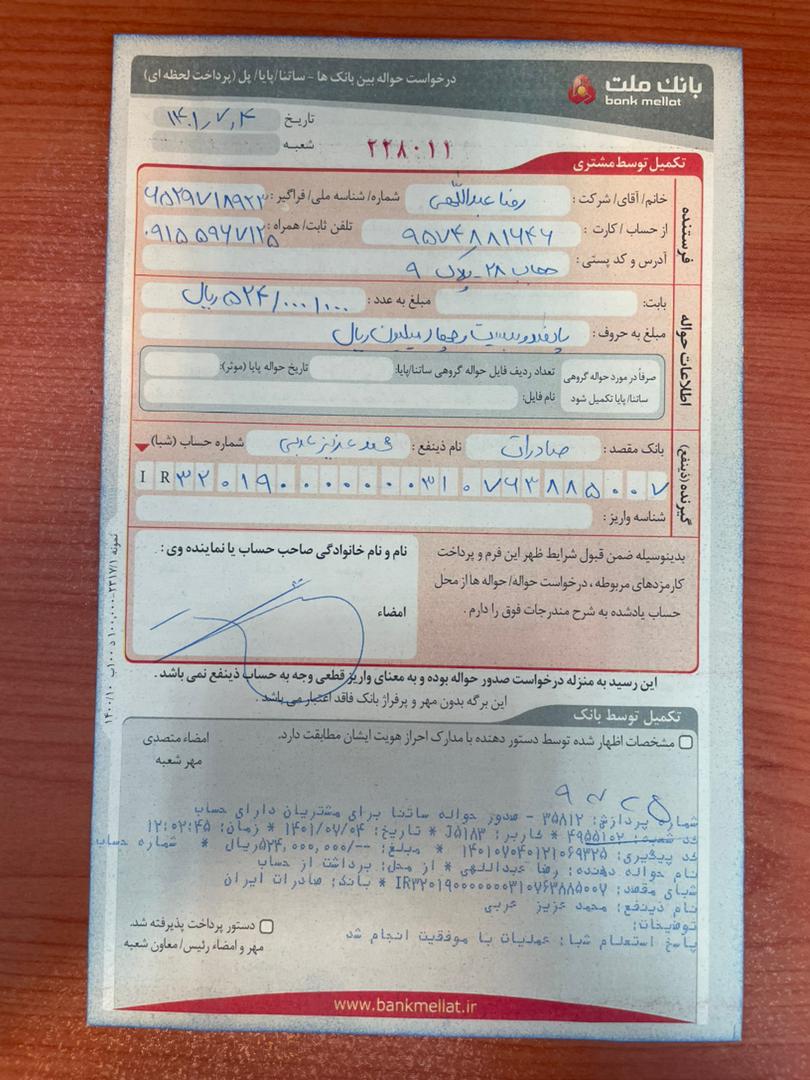 بانک ملت
bank mellat
درخواست حواله بین بانک ها - ساتنا/پایا/پل (پرداخت لحظه ای)
تاریخ ۱۴۰۱,۷,۴
شعبه
۲۲۸۰۱۱
تکمیل توسط مشتری
فرستنده
خانم/آقای/شرکت: رضا عبداللهی شماره/شناسه ملی/فراگیر: ۶۵۲۹۷۱۸۹۲۳
از حساب/کارت: ۹۵۷۴۸۸۱۶۴۶ تلفن ثابت/همراه: ۰۹۱۵۵۹۶۷۱۲۵
آدرس و کد پستی: ۲۸ - پلاک ۹
اطلاعات حواله
بابت: مبلغ به عدد: ۵۲۴/۰۰۰/۰۰۰ ریال
مبلغ به حروف: پانصد و بیست و چهار میلیون ریال
صرفاً در مورد حواله گروهی ساتنا/پایا تکمیل شود
تعداد ردیف فایل حواله گروهی ساتنا/پایا: تاریخ حواله پایا (موثر):
نام فایل:
گیرنده (ذینفع)
بانک مقصد: صادرات نام ذینفع: محمد عزیز عربی شماره حساب (شبا)
IR۳۲۰۱۹۰۰۰۰۰۰۰۳۱۰۷۶۳۸۸۵۰۰۷
شناسه واریز:
بدینوسیله ضمن قبول شرایط ظهر این فرم و پرداخت
کارمزدهای مربوطه، درخواست حواله/حواله ها از محل
حساب یادشده به شرح مندرجات فوق را دارم.
نام و نام خانوادگی صاحب حساب یا نماینده وی:
امضاء
این رسید به منزله درخواست صدور حواله بوده و به معنای واریز قطعی وجه به حساب ذینفع نمی باشد.
این برگه بدون مهر و پرفراژ بانک فاقد اعتبار می باشد.
تکمیل توسط بانک
مشخصات اظهار شده توسط دستور دهنده با مدارک احراز هویت ایشان مطابقت دارد.
امضاء متصدی
مهر شعبه
شماره پردازش: ۳۵۸۱۲ - صدور حواله ساتنا برای مشتریان دارای حساب
کد شعبه: ۴۹۵۵۱۰۲ * کاربر: J۵۱۸۳ * تاریخ: ۱۴۰۱/۰۷/۰۴ * زمان: ۱۲:۰۲:۴۵
کد پیگیری: ۱۴۰۱۰۷۰۴۰۱۲۱۰۶۹۳۲۵ * مبلغ: --/۵۲۴,۰۰۰,۰۰۰ریال * شماره حساب
نام حواله دهنده: رضا عبداللهی * از محل: برداشت از حساب
شبای مقصد: IR۳۲۰۱۹۰۰۰۰۰۰۰۳۱۰۷۶۳۸۸۵۰۰۷ * بانک: صادرات ایران
نام ذینفع: محمد عزیز عربی
توضیحات:
پاسخ استعلام شبا: عملیات با موفقیت انجام شد
دستور پرداخت پذیرفته شد.
مهر و امضاء رئیس/معاون شعبه
www.bankmellat.ir